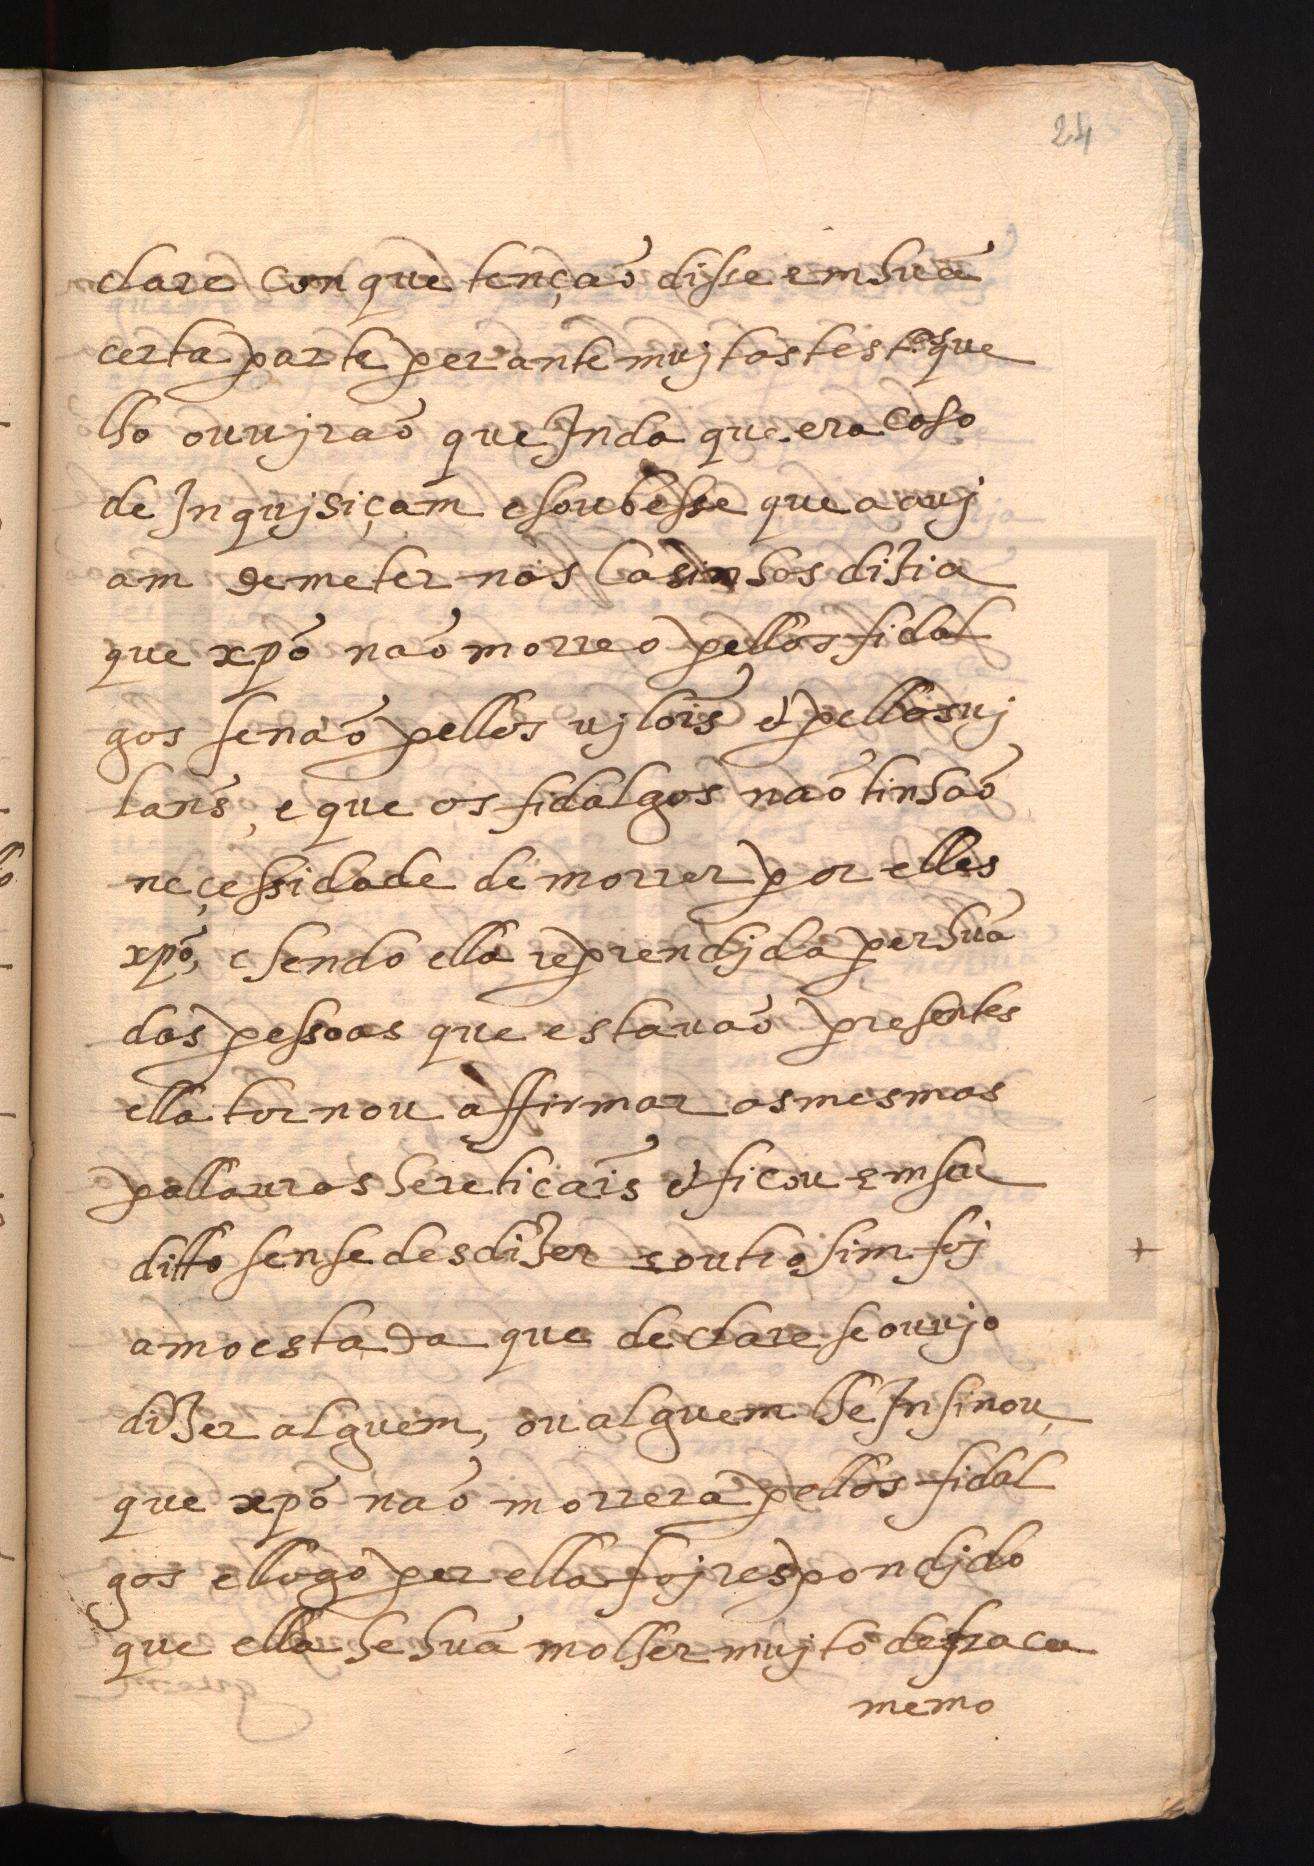 24
clare con que tenção disse em huã
certa parte perante mujtas test.as que
lho ouvjraõ que Inda que era caso
de Inqujsiçam e soubesse que a avj
am de meter nos Casinhos dizia
que xpõ naõ morreo pellos fidal
gos senaõ pellos vjlois & pellos vj
lans, e que os fidalgos naõ tinhaõ
neçessidade de morrer por elles
xpõ, e sendo ella reprendjda per huã
das pessoas que estavaõ presentes
ella tornou affirmar as mesmas
pallavras hereticais & ficou em seu
ditto sen se desdizer e outrosim foj
amoestada que declare se ouvjo
dizer alguem, ou alguem lhe Insinou
que xpõ naõ morrera pellos fidal
gos e llogo per ella foj respondjdo
que ella he huã molher mujto de fraca
memo